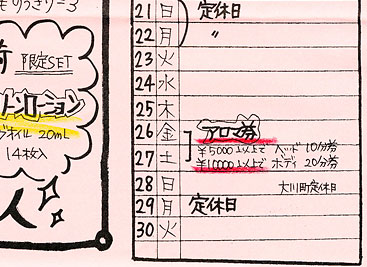 もりっさり=3
限定SET
トンローション
オイル 20mL
14枚入
人
21 日 定休日
22 月 〃
23 火
24 水
25 木
26 金 アロマ券
¥5000以上で ヘッド 10分券
27 土 ¥10000以上で ボディ 20分券
28 日 大川町定休日
29 月 定休日
30 火